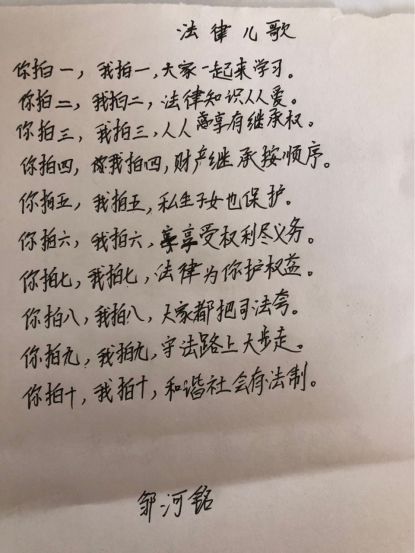 法律儿歌
你拍一，我拍一，大家一起来学习。
你拍二，我拍二，法律知识人人爱。
你拍三，我拍三，人人享有继承权。
你拍四，我拍四，财产继承按顺序。
你拍五，我拍五，私生子女也保护。
你拍六，我拍六，享受权利尽义务。
你拍七，我拍七，法律为你护权益。
你拍八，我拍八，大家都把司法夸。
你拍九，我拍九，守法路上大步走。
你拍十，我拍十，和谐社会有法制。
邹河铭